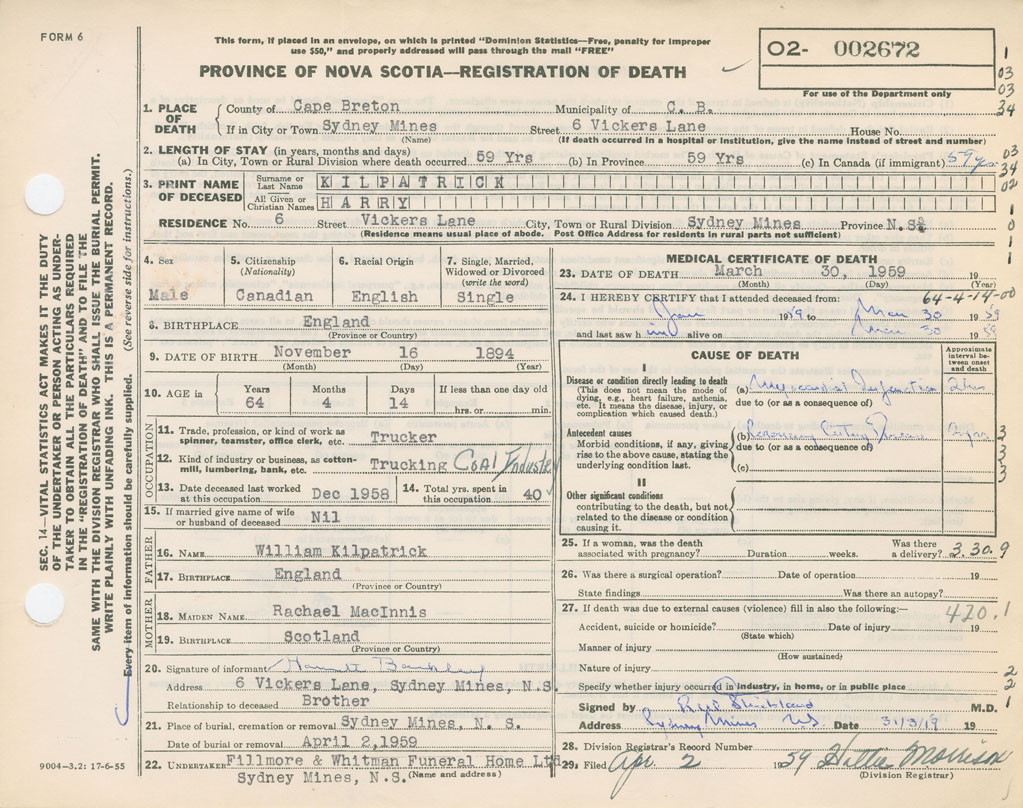 FORM 6
This form, if placed in an envelope, on which is printed "Dominion Statistics—Free, penalty for improper
use $50," and properly addressed will pass through the mail "FREE"
PROVINCE OF NOVA SCOTIA—REGISTRATION OF DEATH
02- 002672
For use of the Department only
1
03
03
34
03
34
02
1
0
1
1
SEC. 14—VITAL STATISTICS ACT MAKES IT THE DUTY
OF THE UNDERTAKER OR PERSON ACTING AS UNDER-
TAKER TO OBTAIN ALL THE PARTICULARS REQUIRED
IN THE "REGISTRATION OF DEATH" AND TO FILE THE
SAME WITH THE DIVISION REGISTRAR WHO SHALL ISSUE THE BURIAL PERMIT.
WRITE PLAINLY WITH UNFADING INK. THIS IS A PERMANENT RECORD.
Every item of information should be carefully supplied. (See reverse side for instructions.)
1. PLACE OF DEATH County of Cape Breton Municipality of C. B.
If in City or Town Sydney Mines Street 6 Vickers Lane House No.
(Name) (If death occurred in a hospital or institution, give the name instead of street and number)
2. LENGTH OF STAY (in years, months and days)
(a) In City, Town or Rural Division where death occurred 59 Yrs (b) In Province 59 Yrs (c) In Canada (if immigrant) 59 yrs
3. PRINT NAME OF DECEASED Surname or Last Name KILPATRICK
All Given or Christian Names HARRY
RESIDENCE No. 6 Street Vickers Lane City, Town or Rural Division Sydney Mines Province N.S.
(Residence means usual place of abode. Post Office Address for residents in rural parts not sufficient)
4. Sex 5. Citizenship (Nationality) 6. Racial Origin 7. Single, Married, Widowed or Divorced (write the word)
Male Canadian English Single
8. BIRTHPLACE England
(Province or Country)
9. DATE OF BIRTH November 16 1894
(Month) (Day) (Year)
10. AGE in Years Months Days If less than one day old
64 4 14 hrs. or min.
OCCUPATION
11. Trade, profession, or kind of work as spinner, teamster, office clerk, etc. Trucker
12. Kind of industry or business, as cotton-mill, lumbering, bank, etc. Trucking Coal Industry
13. Date deceased last worked at this occupation Dec 1958 14. Total yrs. spent in this occupation 40
15. If married give name of wife or husband of deceased Nil
FATHER
16. NAME William Kilpatrick
17. BIRTHPLACE England
(Province or Country)
MOTHER
18. MAIDEN NAME Rachael MacInnis
19. BIRTHPLACE Scotland
(Province or Country)
20. Signature of informant
Address 6 Vickers Lane, Sydney Mines, N.S.
Relationship to deceased Brother
21. Place of burial, cremation or removal Sydney Mines, N. S.
Date of burial or removal April 2,1959
22. UNDERTAKER Fillmore & Whitman Funeral Home Ltd
Sydney Mines, N.S. (Name and address)
9004—3.2: 17-6-55
MEDICAL CERTIFICATE OF DEATH
23. DATE OF DEATH March 30, 1959 19
(Month) (Day) (Year)
24. I HEREBY CERTIFY that I attended deceased from: 64-4-14-00
Jan 1959 to Mar 30 1959
and last saw him alive on Mar 30 1959
CAUSE OF DEATH
Approximate interval between onset and death
I
Disease or condition directly leading to death
(This does not mean the mode of dying, e.g., heart failure, asthenia, etc. It means the disease, injury, or complication which caused death.)
(a) Myocardial
due to (or as a consequence of)
Antecedent causes
Morbid conditions, if any, giving rise to the above cause, stating the underlying condition last.
(b)
due to (or as a consequence of)
(c)
3
3
3
3
II
Other significant conditions
contributing to the death, but not related to the disease or condition causing it.
25. If a woman, was the death associated with pregnancy? Duration weeks. Was there a delivery? 3.30.9
26. Was there a surgical operation? Date of operation 19
State findings Was there an autopsy?
27. If death was due to external causes (violence) fill in also the following:— 420.1
Accident, suicide or homicide? Date of injury 19
(State which)
Manner of injury
(How sustained)
Nature of injury
Specify whether injury occurred in industry, in home, or in public place
2
2
1
Signed by M.D.
Address Sydney Mines N.S. Date 31/3/19 19
28. Division Registrar's Record Number
29. Filed Apr 2 1959 Hattie Morrison
(Division Registrar)